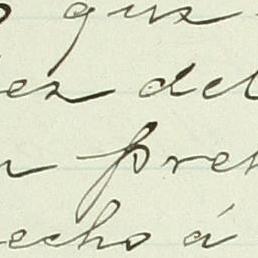 que
ez del
n pret
echo á